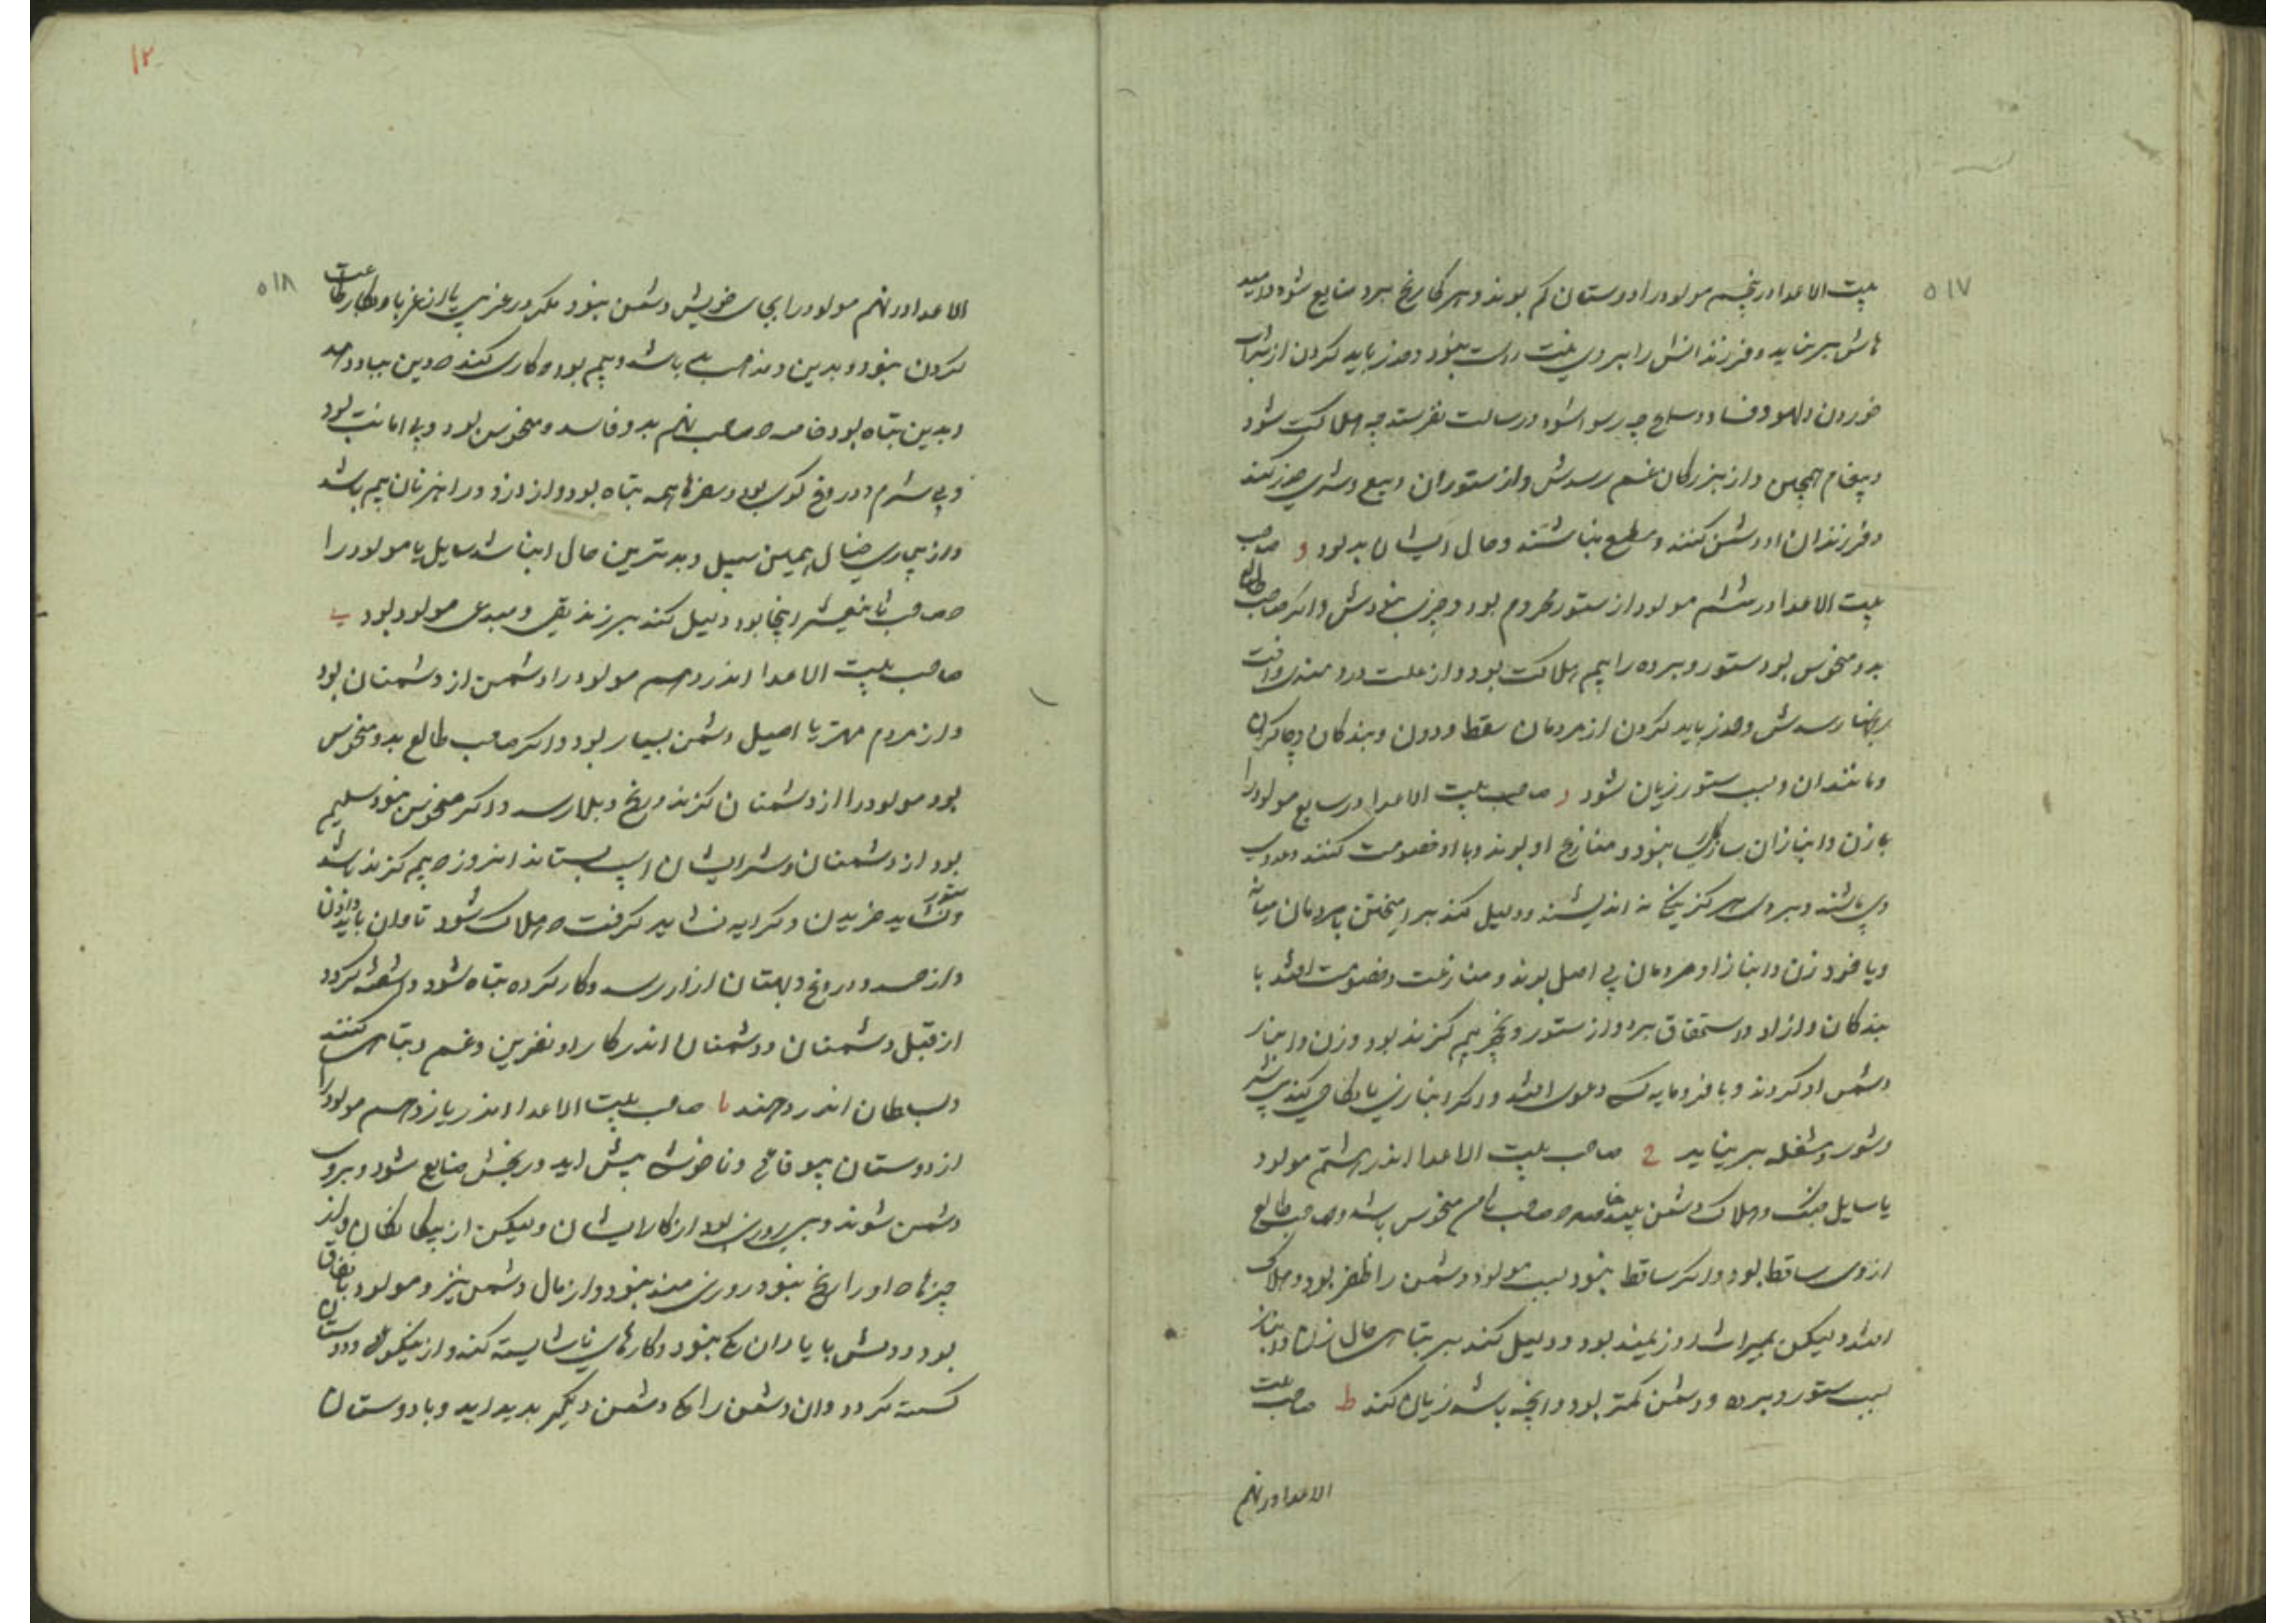 ۵۱۷
بیت الاعدا در پنجم مولود را دوستان کم بوند و هر کار رنج برد ضایع شود و امید
هاش بر نیاید و فرزندانش را بر وی راست نبود و حذر باید کردن از شراب
خوردن و لهو و فساد و سلاح چه رسوا شود و رسالت نفرستد چه هلاکت شود
و پیغام همچنین و از بزرگان غم رسدش و از ستوران و بیع و شری حذر کند
و فرزندان او دشمن کنند و مطیع نباشند و حال ایشان بد بود و صاحب
بیت الاعدا در ششم مولود از ستور محروم بود و اگر صاحب طالع
بد و منحوس بود ستور و برده را بیم هلاکت بود و از علت دردمندی و آفت
رسدش و حذر باید کردن از مردمان سقط و دون و بندگان و چاکران
و مانند ان و بسبب ستور زیان شود ز صاحب بیت الاعدا در سابع مولود را
با زن و انبازان سازگاری نبود و منازع او بوند و با او خصومت کنند و عدوی
وی باشند و بر وی هرگز نه اندیشند و دلیل کند بر امیختن با مردمان
و با خود زن و انباز او مردمان بی اصل بوند و منازعت و خصومت افتد با
بندگان و ازاد و استحقاق برد و از ستور و نخچیر بیم گزند بود و زن و انباز
دشمن او گردند و با فرومایه کسی دعوی افتد و اگر انبازی یا نکاحی کند
و شور و مشغله بر نیاید ح صاحب بیت الاعدا اندر هشتم مولود
یا سایل جنگ و هلاک دشمن بیند خاصه صاحب ثامن منحوس باشد و صاحب طالع
از وی ساقط بود و اگر ساقط نبود بسبب مولود دشمن را ظفر بود و هلاک
افتد و لیکن بمیراث روزیمند بود و دلیل کند بر تباهی حال زنان و انباز
بسبب ستور و برده و دشمن کمتر بود و انچه باشد زیان کند ط صاحب بیت
الاعدا در نهم
۱۲
۵۱۸
الاعدا در نهم مولود را بجای خویش دشمن نبود مگر در غریبی یا از غربا و بکار طاعت
کردن نبود و بدین و مذهب باشد و بیم بود کاری کند دین بباد دهد
و بدین تباه بود خاصه صاحب نهم بد و فاسد و منحوس بود و بی امانت بود
و بی شرم و دروغ گوی بود و سفرها همه تباه بود و از دزد و راهزنان بیم باشد
و از بیماری همین سبیل و بدترین حال ان باشد سایل یا مولود را
صاحب ثانیعشر اینجا بود دلیل کند بر زندیقی و مبدعی مولود بود ی
صاحب بیت الاعدا اندر دهم مولود را دشمن از دشمنان بود
و از مردم مهتر یا اصیل دشمن بسیار بود و اگر صاحب طالع بد و منحوس
بود مولود را از دشمنان گزند و رنج و بلا رسد و اگر منحوس نبود سلیم
بود از دشمنان و شر ایشان اسب بستاند امروز بیم گزند باشد
و نشاید ستور خریدن و بکرایه نشاید گرفت هلاک شود تاوان باید دادن
و از حسد و دروغ و بهتان ازار رسد و کار کرده تباه شود و اشفته گردد
از قبل دشمنان و دشمنان اندر کار او نفرین و غم و تباهی کنند
و بسلطان اندر دهند یا صاحب بیت الاعدا اندر یازدهم مولود را
از دوستان بیوفائی و ناخوشی پیش اید و رنجش ضایع شود و بر وی
دشمن شوند و بی روزی بود از کار ایشان و لیکن از بیگانگان و از
چیزها او را رنج نبود روزی مند نبود و از مال دشمن نیز و مولود با نفاق
بود و دلش با یاران یکی نبود و کارهای ناشایسته کند و از نیکوئی و دوستان
گسسته گردد وان دشمن را دشمن دیگر بدید اید و با دوستان